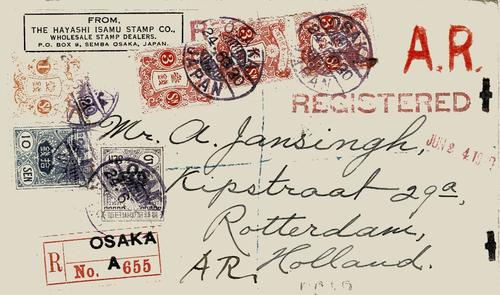 FROM,
THE HAYASHI ISAMU STAMP CO.,
WHOLESALE STAMP DEALERS.
P.O. BOX 9, SEMBA OSAKA, JAPAN.
OSAKA
JAPAN
A.R.
REGISTERED
JUN 24
Mr. A. Jansingh,
Kipstraat 29a,
Rotterdam,
Holland.
AR,
10
SEN
OSAKA
R No. A 655